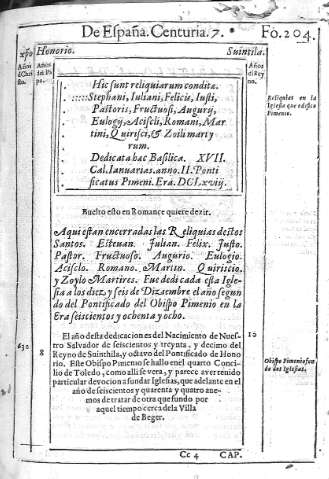 De España. Centuria. 7. Fo. 204.
xp̃o Honorio. Suintila.
Años
d'Chri
sto.
Años
de Pa
pa.
Años
de Rey
no.
Hic sunt reliquiarum conditæ.
. :::::Stephani, Iuliani, Felicis, Iusti,
Pastoris, Fructuosi, Augurij,
Eulogij, Aciscli, Romani, Mar
tini, Quirisci, & Zoili marty
rum.
Dedicata hac Basilica. XVII.
Cal. Ianuarias. anno. II. Ponti
ficatus Pimeni. Era. DCLxviij.
Reliquias en la
Iglesia que edifica
Pimenio.
Buelto esto en Romance quiere dezir.
Aqui estan encerradas las Reliquias destos
Santos. Esteuan. Iulian. Felix. Iusto.
Pastor. Fructuoso. Augurio. Eulogio.
Acisclo. Romano. Martin. Quiricio.
y Zoylo Martires. Fue dedicada esta Igle
sia a los diez y seis de Dizembre el año segun
do del Pontificado del Obispo Pimenio en la
Era seiscientos y ochenta y ocho.
630
8
10
El año desta dedicacion es del Nacimiento de Nues
tro Salvador de seiscientos y treynta, y decimo del
Reyno de Suinthila, y octavo del Pontificado de Hono
rio. Este Obispo Pimenio se hallo en el quarto Conci
lio de Toledo, como alli se vera, y parece aver tenido
particular devocion a fundar Iglesias, que adelante en el
año de seiscientos y quarenta y quatro ave-
mos de tratar de otra que fundo por
aquel tiempo cerca de la Villa
de Beger.
Obispo Pimenio fun
da dos Iglesias.
Cc 4 CAP.